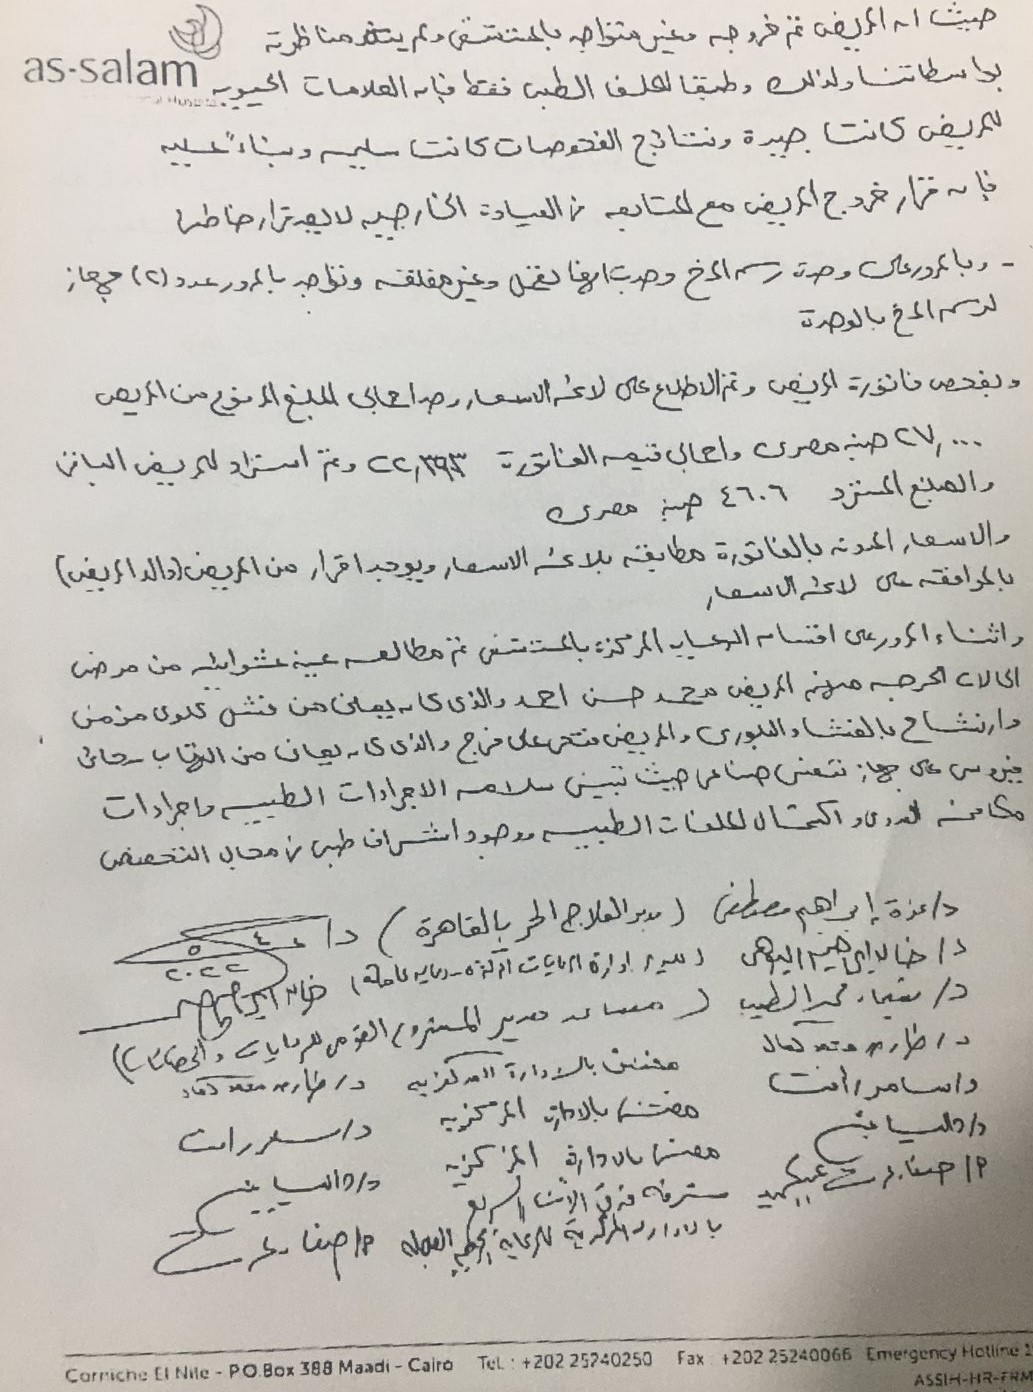 as-salam
حيث ان المريض تم خروجه وغير متواجد بالمستشفى ولم يتم مناظرته
بواسطتنا ولذلك وطبقا للملف الطبى فقط فإن العلامات الحيوية
للمريض كانت جيدة ونتائج الفحوصات كانت سليمه وبناءً عليه
فإن قرار خروج المريض مع المتابعه فى العيادة الخارجيه لا يعد قرار خاطئ
- وبالمرور على وحدة رسم المخ وجدت انها تعمل وغير مغلقه وتواجد بالمرور عدد (٢) جهاز
لرسم المخ بالوحدة
وبفحص فاتورة المريض وتم الاطلاع على لائحه الاسعار وجد اجمالى المبلغ المدفوع من المريض
٢٧,٠٠٠ جنيه مصرى واجمالى قيمه الفاتورة ٢٢,٣٩٣ وتم استرداد للمريض الباقى
والمبلغ المسترد ٤٦٠٦ جنيه مصرى
والاسعار المدونه بالفاتورة مطابقه بلائحه الاسعار ويوجد اقرار من المريض (والد المريض)
بالموافقه على لائحه الاسعار
واثناء المرور على اقسام الرعايه المركزة بالمستشفى تم مطالعه عينه عشوائيه من مرضى
الحالات الحرجه منهم المريض محمد حسن احمد والذى كان يعانى من فشل كلوى مزمن
وارتشاح بالغشاء البلورى والمريض فتحى على فرج والذى كان يعانى من التهاب سحائى
فيروسى على جهاز تنفس صناعى حيث تبين سلامه الاجراءات الطبيه واجراءات
مكافحه العدوى واكتمال الملفات الطبيه ووجود اشراف طبى فى مجال التخصص
د/ عزة إبراهيم مصطفى (مدير العلاج الحر بالقاهرة) د/ عزة
٥ ٤
٢٠٢٢
د/ خالد ابراهيم (مدير ادارة الرعايات المركزة - رعايه عاجلة) خالد ابراهيم
د/ شيماء محمد الطيب (مساعد مدير المشروع القومى للرعايات والحضانات)
د/ طارق محمد كمال مفتش بالادارة المركزيه د/ طارق محمد كمال
د/ سامر رأفت مفتش بالادارة المركزيه د/ سامر رأفت
د/ داليا مفتش بالادارة المركزيه د/ داليا
م/ صفاء مشرفه فرق الانتشار السريع
بالادارة المركزية للرعاية الحرجه العاجله م/ صفاء
Corniche El Nile - P.O.Box 388 Maadi - Cairo Tel. : +202 25240250 Fax : +202 25240066 Emergency Hotline 1
ASSIH-HR-FRM